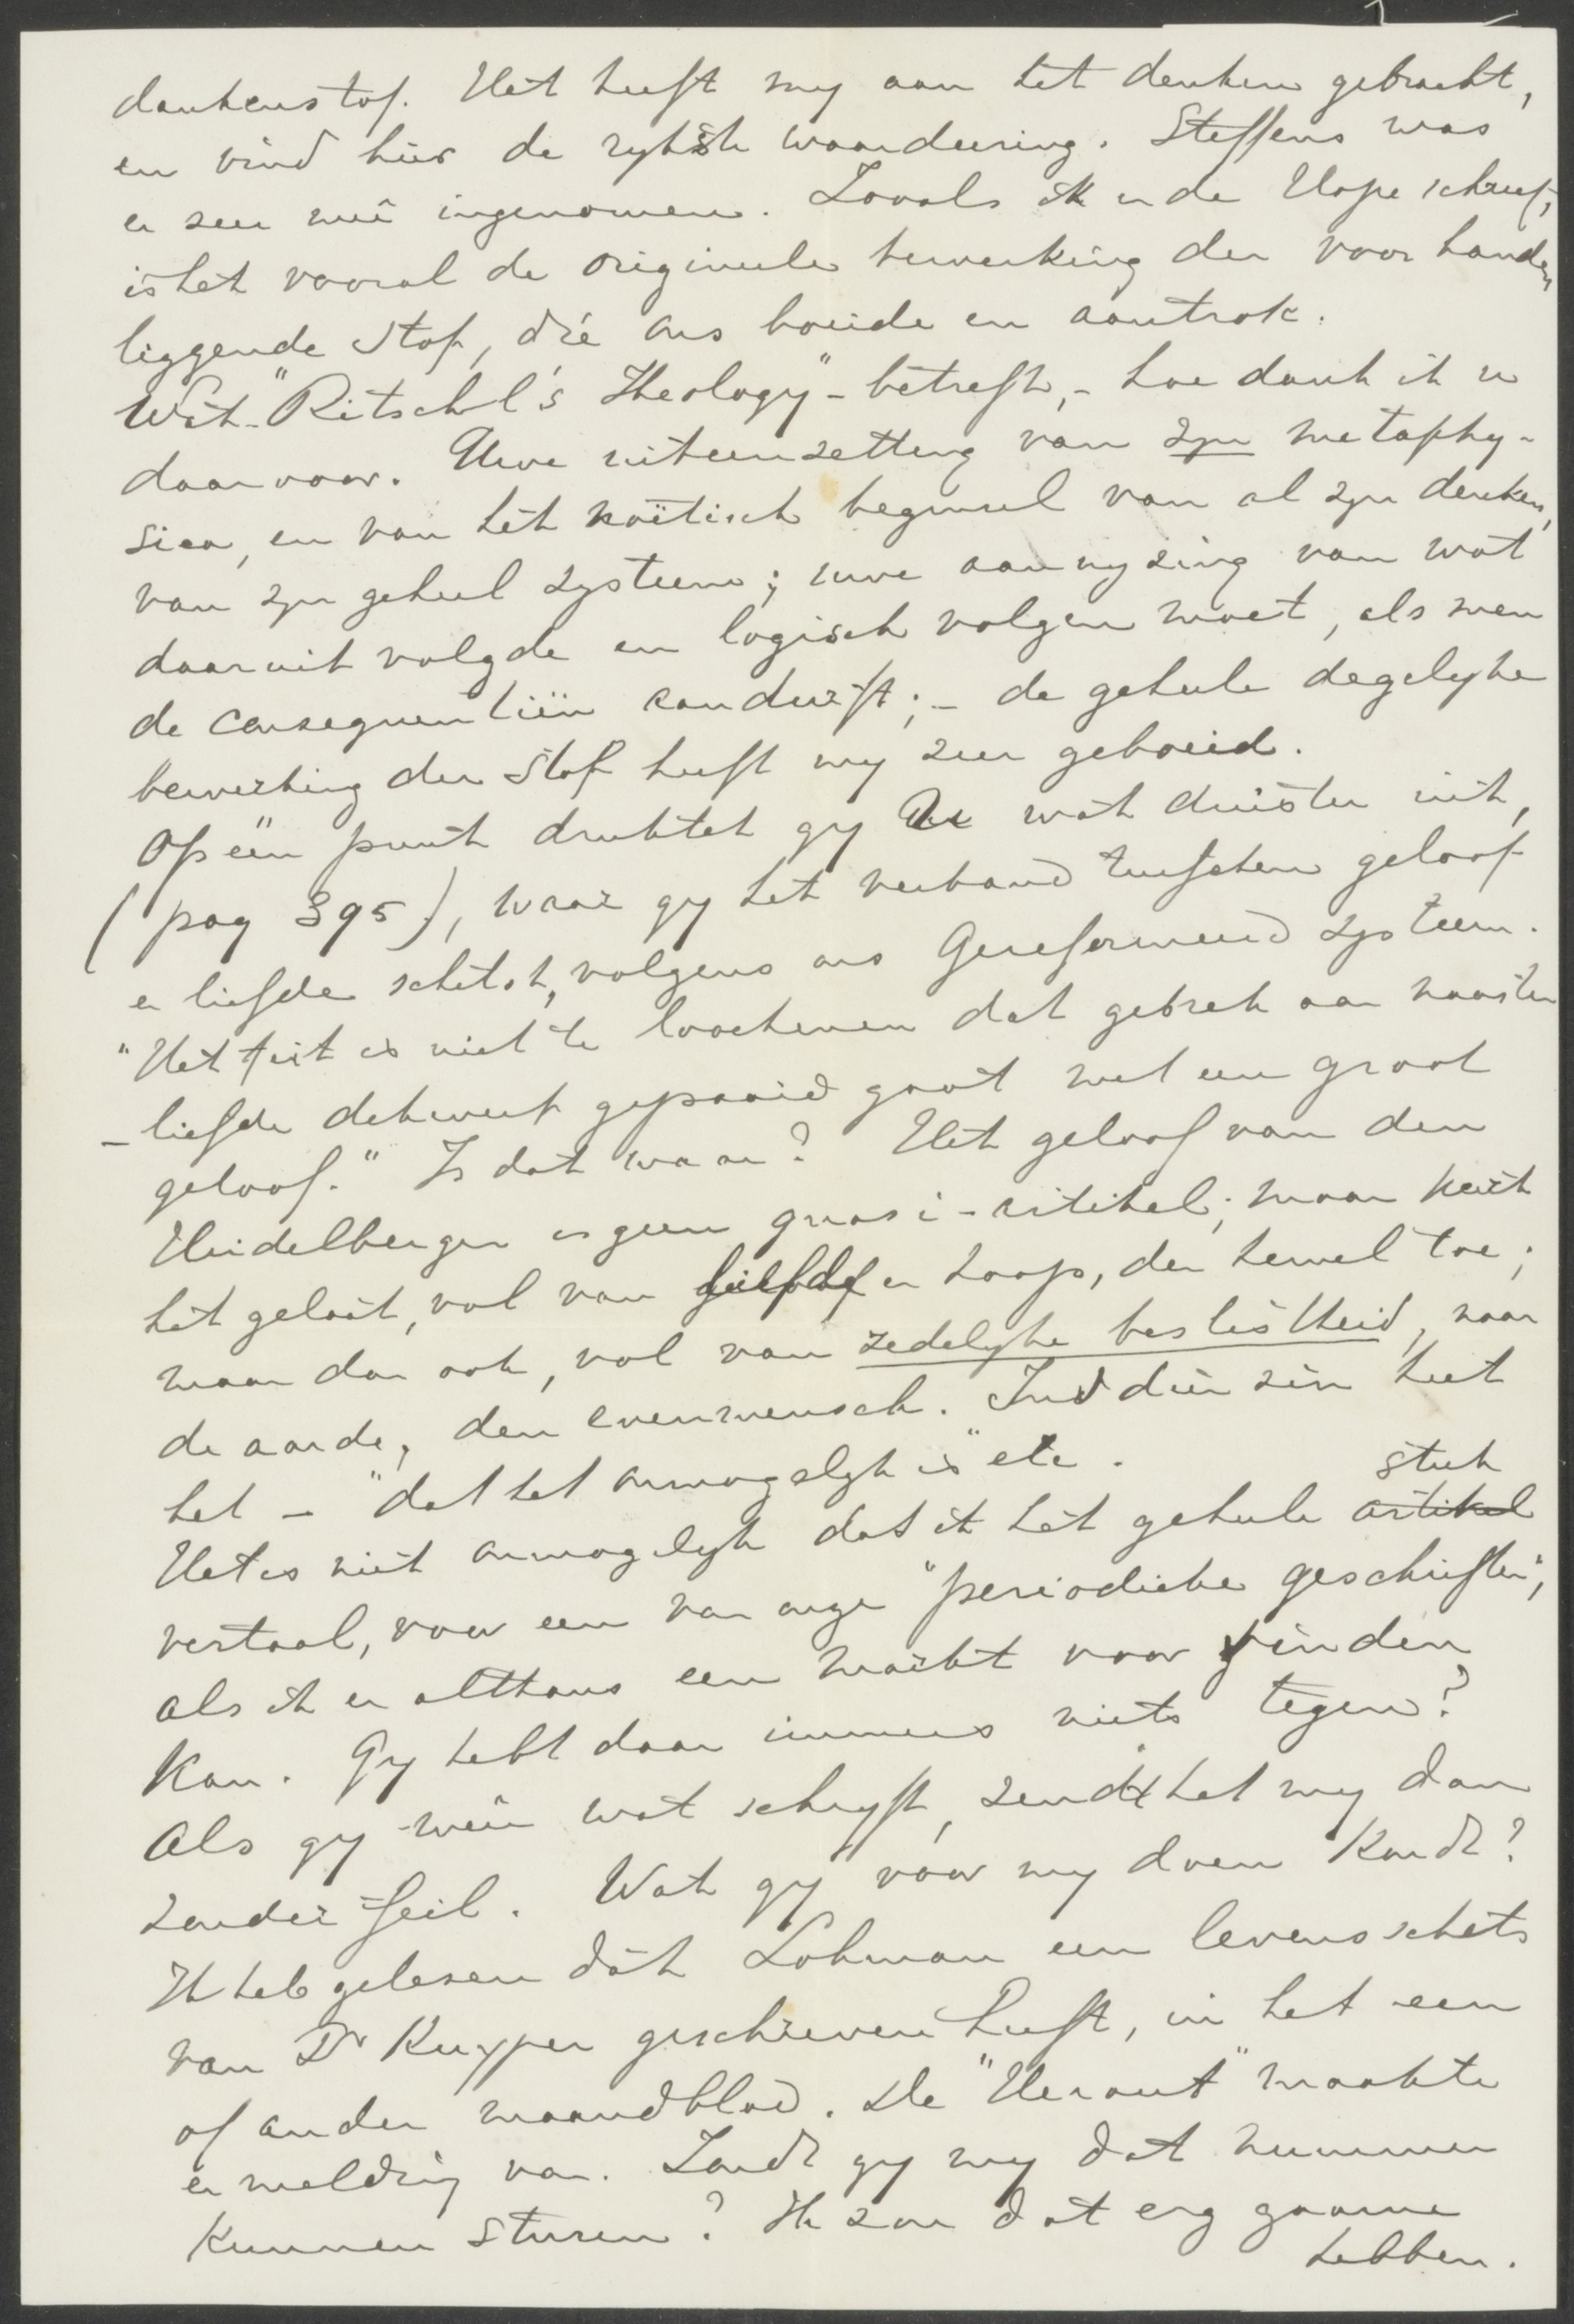 dankenstof. Het heeft my aan het denken gebracht,
en vind hier de rykste waardeering. Steffens was
er zeer meê ingenomen. Zooals ik in de Hope schreef,
is het vooral de origineele bewerking der voor handen
liggende stof, dié ons boeide en aantrok.
Wat "Ritschl's Theology" betreft, - hoe dank ik u
daarvoor. Uwe uiteenzetting van zyn metaphy-
sica, en van het noëtisch beginsel van al zyn denken,
van zyn geheel systeem; uwe aanwyzing van wat
daaruit volgde en logisch volgen moet, als men
de consequentiën aandurft; - de geheele degelyke
bewerking der stof heeft my zeer geboeid.
Op één punt druktet gy U wat duister uit,
(pag 395), waar gy het verband tusschen geloof
en liefde schetst, volgens ons Gereformeerd systeem.
"Het feit is niet te loochenen dat gebrek aan naasten
- liefde dikwerf gepaard gaat met een groot
geloof." Is dat waar? Het geloof van den
Heidelberger is geen quasi-artikel; maar keert
het gelaat, vol van liefde en hoop, den hemel toe;
maar dan ook, vol van zedelyke beslistheid, naar
de aarde, den evenmensch. In dien zin heet
het - "dat het onmogelyk is" etc.
Het is niet onmogelyk dat ik het geheele artikel stuk
vertaal, voor een van onze "periodieke geschriften",
als ik er althans een markt voor vinden
kan. Gy hebt daar immers niets tegen?
Als gy weêr wat schryft, zendt het my dan
zonder feil. Wat gy voor my doen kondt?
Ik heb gelezen dat Lohman een levensschets
van Dr Kuyper geschreven heeft, in het een
of ander maandblad. De "Heraut" maakte
er melding van. Zoudt gy my dat nummer
kunnen sturen? Ik zou dat erg gaarne
hebben.